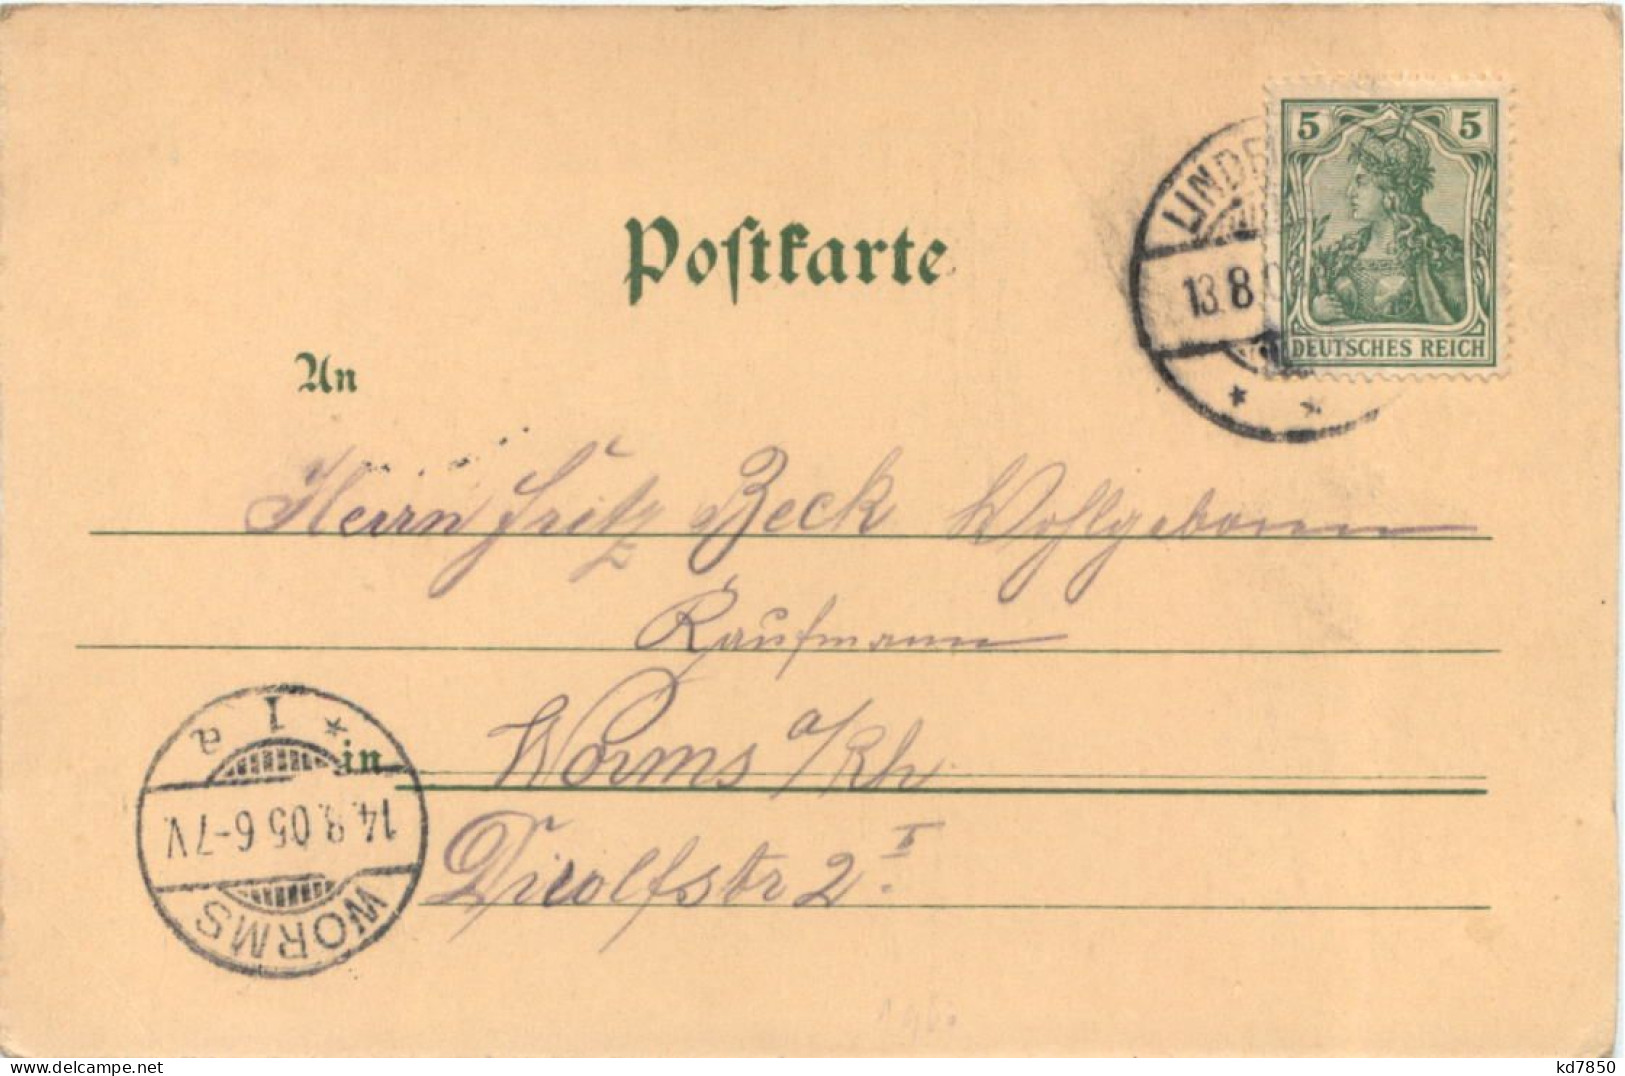 Postkarte
5 5
DEUTSCHES REICH
13.8.0
An
Herrn Fritz Beck Wohlgeboren
Kaufmann
in Worms a/Rh
Dirolfstr 2 I.
1 a
14.8.05 6-7V.
WORMS
delcampe.net
kd7850